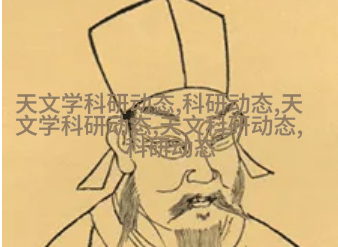 天文学科研动态,科研动态,天
文学科研动态,天文科研动态,
科研动态